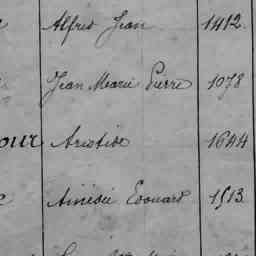 Alfred Jean 1412.
Jean Marie Pierre 1078
our Aristide 1644
Amédée Edouard 1513